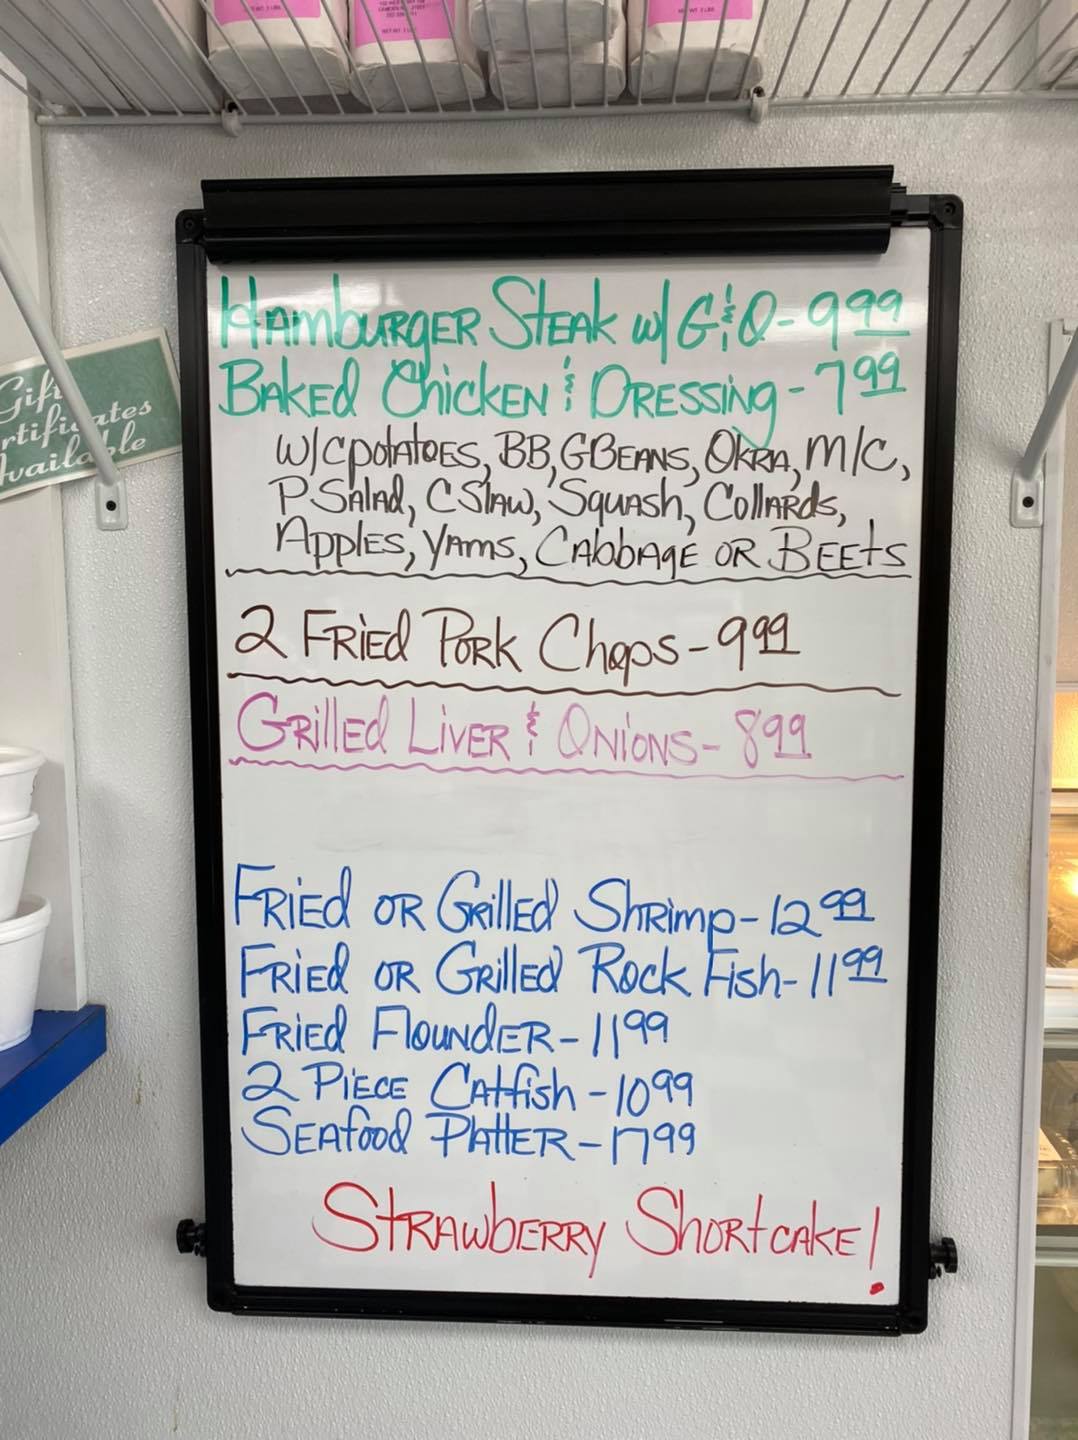 NET WT. 2 LBS.
NET WT. 2 LBS.
Gift
Available
Hamburger Steak w/ G & O - 9 99
Baked Chicken & Dressing - 7 99
w/ C potatoes, BB, G Beans, Okra, M/C,
P Salad, C Slaw, Squash, Collards,
Apples, Yams, Cabbage or Beets
2 Fried Pork Chops - 9 99
Grilled Liver & Onions - 8 99
Fried or Grilled Shrimp - 12 99
Fried or Grilled Rock Fish - 11 99
Fried Flounder - 11 99
2 Piece Catfish - 10 99
Seafood Platter - 17 99
Strawberry Shortcake!